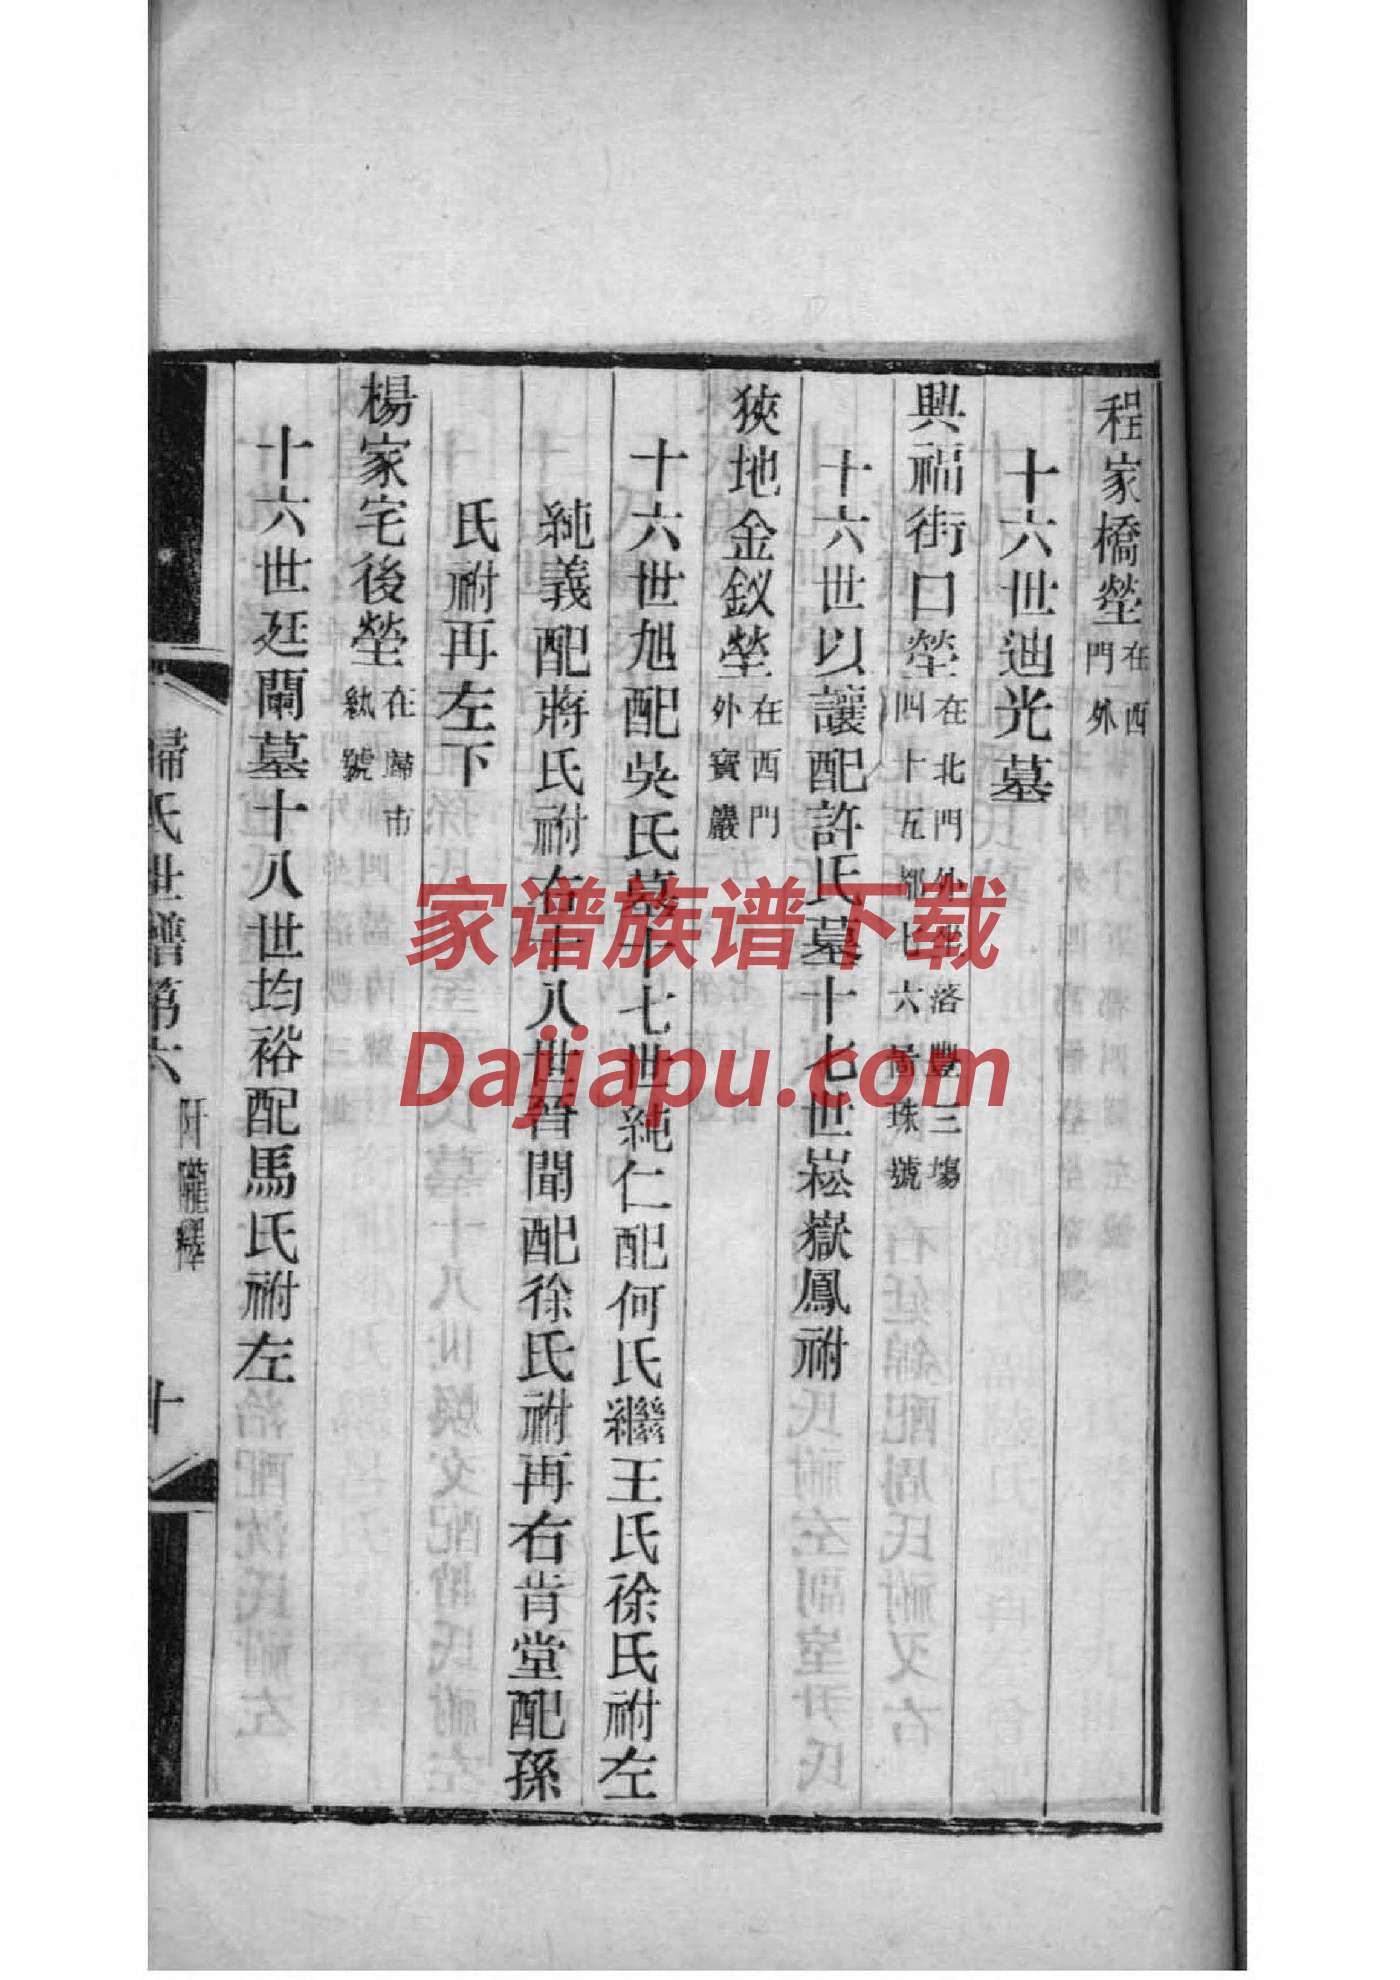 程家橋塋在西門外
十六世迪光墓
興福街口塋在北門外坐落豐三場四十五都七六啇珠號
十六世以讓配許氏墓十七世崧嶽鳳祔
狹地金釵塋在西門外寶巖
十六世旭配吳氏墓十七世純仁配何氏繼王氏徐氏祔左
純義配蔣氏祔右十八世晉聞配徐氏祔再右肯堂配孫
氏祔再左下
楊家宅後塋在歸市號
十六世廷蘭墓十八世均裕配馬氏祔左
歸氏世譜第六
十
家谱族谱下载
Dajiapu.com